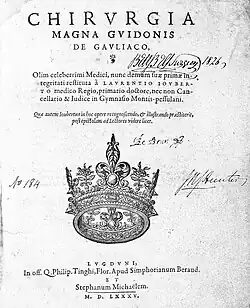 CHIRVRGIA
MAGNA GVIDONIS
DE GAVLIACO,
Olim celeberrimi Medici, nunc demum suæ primæ in-
tegritati restituta à LAVRENTIO IOVBER-
TO medico Regio, primario doctore, nec non Can-
cellario & Iudice in Gymnasio Montis-pessulani.
Quæ autem Ioubertus in hoc opere recognoscendo, & illustrando præstiterit,
post epistolam ad Lectores videre licet.
No 184
LVGDVNI,
In off. Q. Philip. Tinghi, Flor. Apud Simphorianum Beraud.
ET
Stephanum Michaëlem.
M. D. LXXXV.